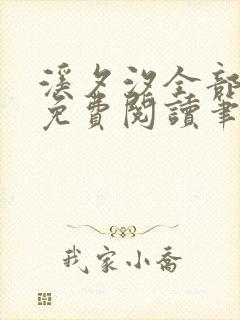 溪夕汐全部
免費閱讀筆
我家小喬